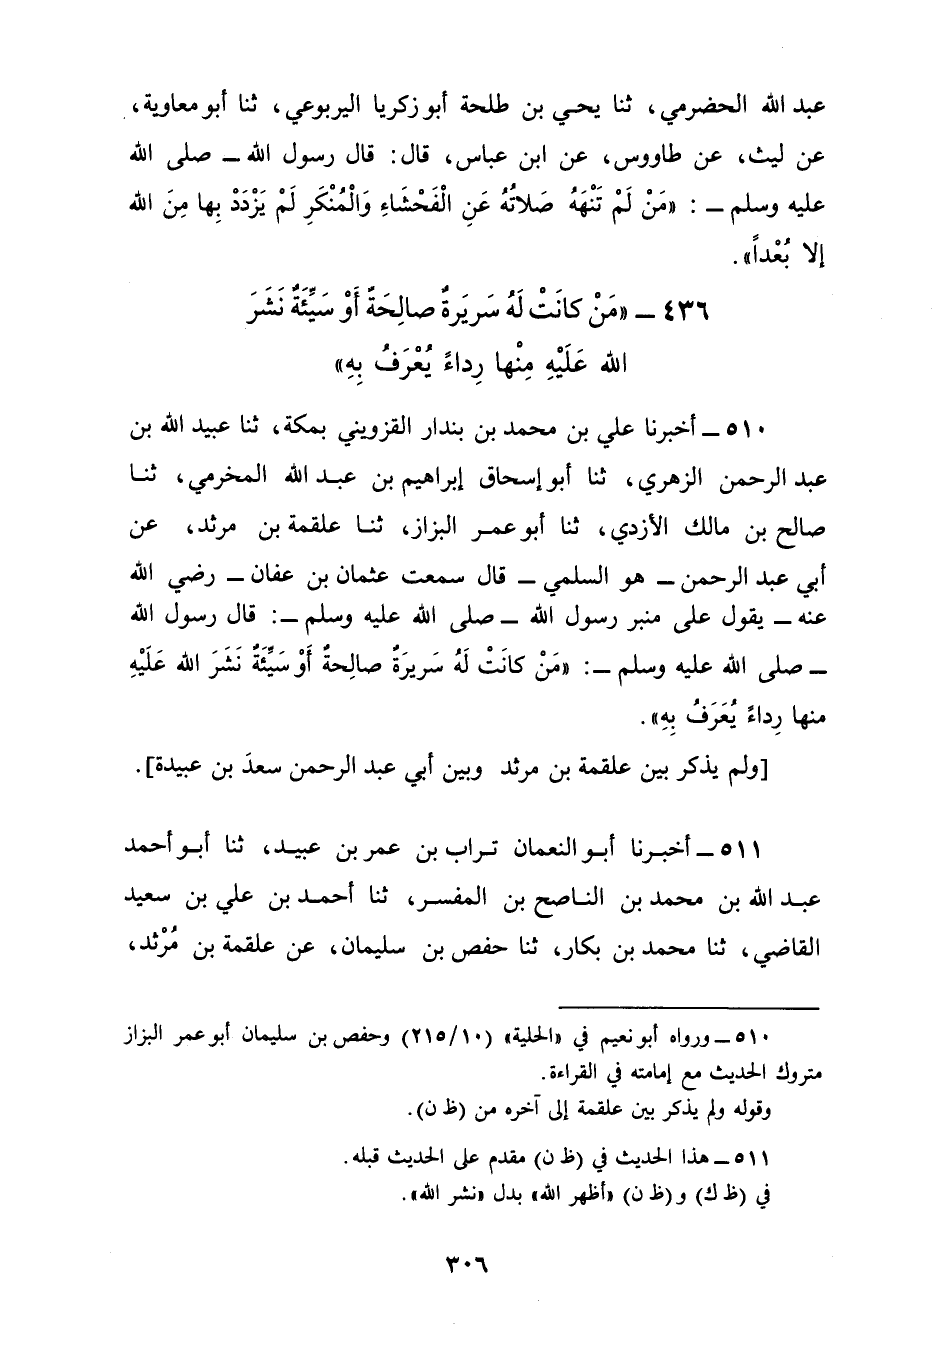 عبد الله الحضرمي، ثنا يحيى بن طلحة أبو زكريا اليربوعي، ثنا أبو معاوية،
عن ليث، عن طاووس، عن ابن عباس، قال: قال رسول الله ــ صلى الله
عليه وسلم ــ : «مَنْ لَمْ تَنْهَهُ صَلاتُهُ عَنِ الْفَحْشَاءِ وَالْمُنْكَرِ لَمْ يَزْدَدْ بِها مِنَ الله
إلا بُعْداً».
٤٣٦ ــ «مَنْ كانَتْ لَهُ سَرِيَرةٌ صالِحَةٌ أَوْ سَيِّئَةٌ نَشَرَ
الله عَلَيْهِ مِنْها رِداءً يُعْرَفُ بِهِ»
٥١٠ ــ أخبرنا علي بن محمد بن بندار القزويني بمكة، ثنا عبيد الله بن
عبد الرحمن الزهري، ثنا أبو إسحاق إبراهيم بن عبد الله المخرمي، ثنا
صالح بن مالك الأزدي، ثنا أبو عمر البزاز، ثنا علقمة بن مرثد، عن
أبي عبد الرحمن ــ هو السلمي ــ قال سمعت عثمان بن عفان ــ رضي الله
عنه ــ يقول على منبر رسول الله ــ صلى الله عليه وسلم ــ: قال رسول الله
ــ صلى الله عليه وسلم ــ: «مَنْ كانَتْ لَهُ سَرِيرَةٌ صالِحةٌ أَوْ سَيِّئَةٌ نَشَرَ الله عَلَيْهِ
منها رِداءً يُعَرَفُ بِهِ».
[ولم يذكر بين علقمة بن مرثد وبين أبي عبد الرحمن سعدَ بن عبيدة].
٥١١ ــ أخبرنا أبو النعمان تراب بن عمر بن عبيد، ثنا أبو أحمد
عبد الله بن محمد بن الناصح بن المفسر، ثنا أحمد بن علي بن سعيد
القاضي، ثنا محمد بن بكار، ثنا حفص بن سليمان، عن علقمة بن مُرْثد،
٥١٠ ــ ورواه أبو نعيم في «الحلية» (٢١٥/١٠) وحفص بن سليمان أبو عمر البزاز
متروك الحديث مع إمامته في القراءة.
وقوله ولم يذكر بين علقمة إلى آخره من (ظ ن).
٥١١ ــ هذا الحديث في (ظ ن) مقدم على الحديث قبله.
في (ظ ك) و (ظ ن) «أظهر الله» بدل «نشر الله».
٣٠٦